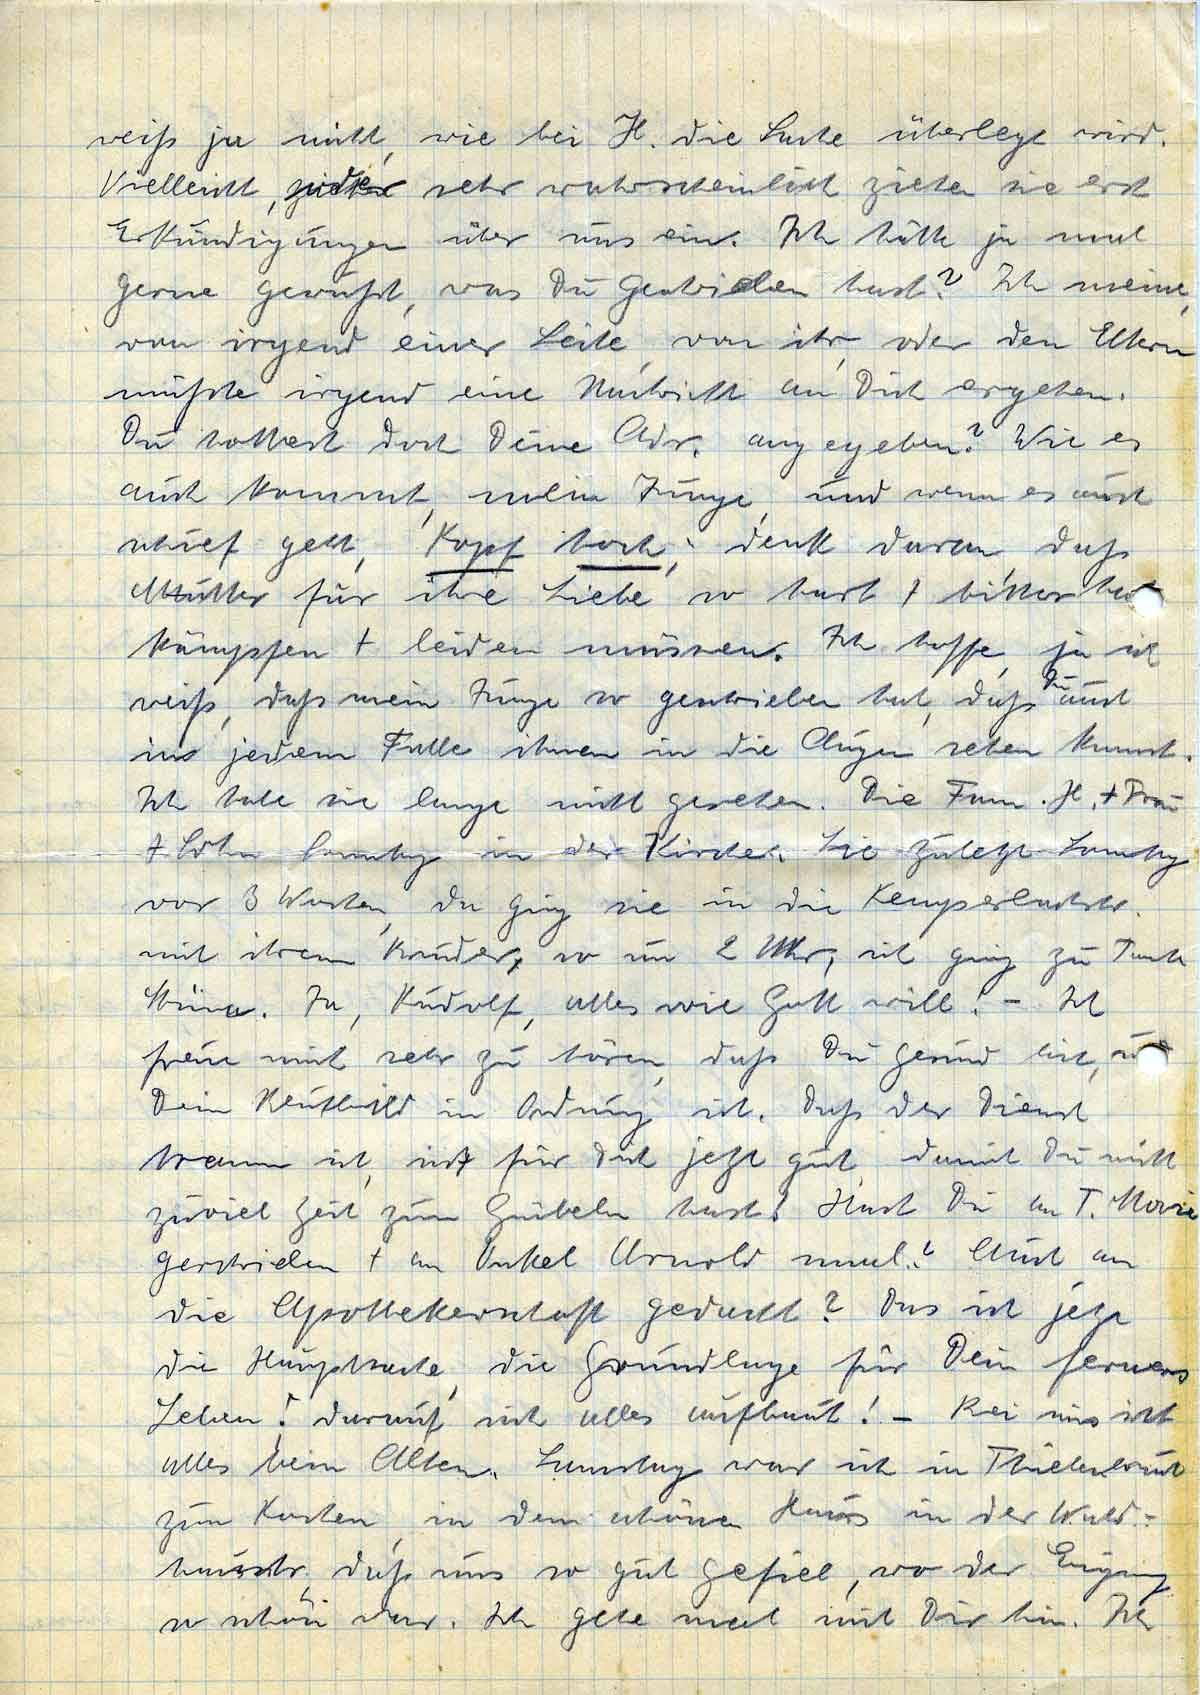 weiß ja nicht, wie bei H. die Sache überlegt wird.
Vielleicht, sehr wahrscheinlich ziehen sie erst
Erkundigungen über uns ein. Ich hätte ja mal
gerne gewußt, was Du geschrieben hast? Ich meine,
von irgend einer Seite, von ihr, oder den Eltern
müßte irgend eine Nachricht an Dich ergehen.
Du hattest doch Deine Adr. angegeben? Wie es
auch kommt, mein Junge, und wenn es auch
schief geht, Kopf hoch, denk daran, daß
Mütter für ihre Liebe so hart + bitter
kämpfen + leiden müssen. Ich hoffe, ja ich
weiß, daß mein Junge so geschrieben hat, daß Du auch
in jedem Falle ihnen in die Augen sehen kannst.
Ich habe sie lange nicht gesehen. Die Fam. H. + Frau
+ Sohn Sonntag in der Kirche. Sie zuletzt Samstag
vor 3 Wochen, da ging sie in die
mit ihrem Bruder, so um 2 Uhr, ich ging zu Tante
Ja, Rudolf, alles wie Gott will! – Ich
freue mich sehr zu hören, daß Du gesund bist, und
Dein in Ordnung ist. Daß der Dienst
stramm ist, ist für Dich jetzt gut, damit Du nicht
zuviel Zeit zum Grübeln hast! Hast Du an T. Marie
geschrieben + an Onkel Arnold mal? Auch an
die Apothekerschaft gedacht? Das ist jetzt
die Hauptsache, die Grundlage für Dein ferners
Leben! darauf sich alles aufbaut! – Bei uns ist
alles beim Alten. Samstag war ich in Thielenbruch
zum Kochen, in dem schönen Haus in der Wald-
hausstr, daß uns so gut gefiel, wo der Eingang
so schön war. Ich gehe mal mit Dir hin. Ich